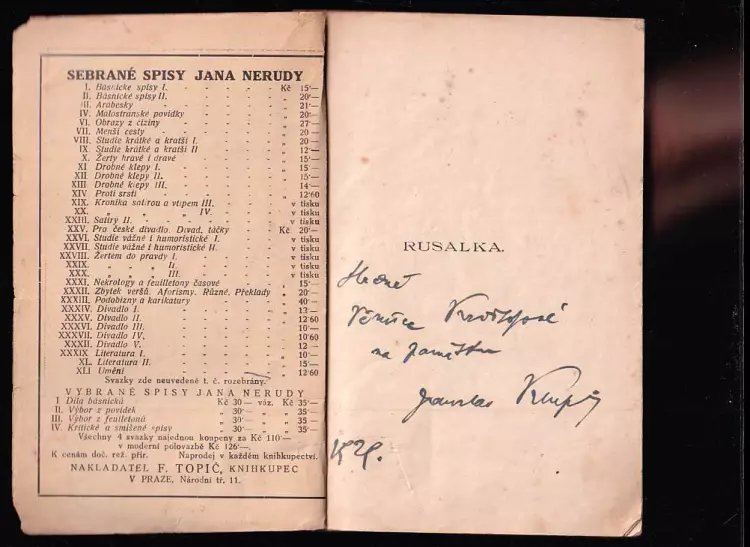 SEBRANÉ SPISY JANA NERUDY
I. Básnické spisy I. - - - - - Kč 15·—
II. Básnické spisy II. - - - - - „ 20·—
III. Arabesky - - - - - - „ 21·—
IV. Malostranské povídky - - - - „ 20·—
VI. Obrazy z ciziny - - - - - „ 27·—
VII. Menší cesty - - - - - „ 20 —
VIII. Studie krátké a kratší I. - - - „ 20 —
IX Studie krátké a kratší II - - - „ 12·—
X. Žerty hravé i dravé - - - - „ 15·—
XI Drobné klepy I. - - - - - „ 15·—
XII. Drobné klepy II. - - - - - „ 15·—
XIII Drobné klepy III. - - - - - „ 14·—
XIV Proti srsti - - - - - - „ 12·60
XIX. Kronika satirou a vtipem III. - - - v tisku
XX. „ „ „ „ IV. - - v tisku
XXIII. Satiry II. - - - - - - v tisku
XXV. Pro české divadlo. Divad. táčky - - Kč 20·—
XXVI. Studie vážné i humoristické I. - - v tisku
XXVII. Studie vážné i humoristické II. - - v tisku
XXVIII. Žertem do pravdy I. - - - - v tisku
XXIX. „ „ „ II. - - - - v tisku
XXX. „ „ „ III. - - - - v tisku
XXXI. Nekrology a feuilletony časové - - „ 15·—
XXXII. Zbytek veršů. Aforismy. Různé. Překlady „ 20·—
XXXIII. Podobizny a karikatury - - - „ 40·—
XXXIV. Divadlo I. - - - - - „ 13 —
XXXV. Divadlo II. - - - - - „ 12·60
XXXVI. Divadlo III. - - - - - „ 10·—
XXXVII. Divadlo IV. - - - - - „ 10·60
XXXII. Divadlo V. - - - - - „ 12 —
XXXIX. Literatura I. - - - - - „ 10·—
XL. Literatura II. - - - - - „ 15·—
XLI Umění - - - - - - „ 12·60
Svazky zde neuvedené t. č. rozebrány.
VYBRANÉ SPISY JANA NERUDY
I Díla básnická Kč 30 — váz. Kč 35·—
II. Výbor z povídek „ 30·— „ „ 35·—
III. Výbor z feuilletonů „ 30·— „ „ 35·—
IV. Kritické a smíšené spisy „ 30·— „ „ 35·—
Všechny 4 svazky najednou koupeny za Kč 110·—
v moderní polovazbě Kč 126·—.
K cenám doč. rež. přir. Naprodej v každém knihkupectví.
NAKLADATEL F. TOPIČ, KNIHKUPEC
V PRAZE, Národní tř. 11.
RUSALKA.
na památku
Jaroslav